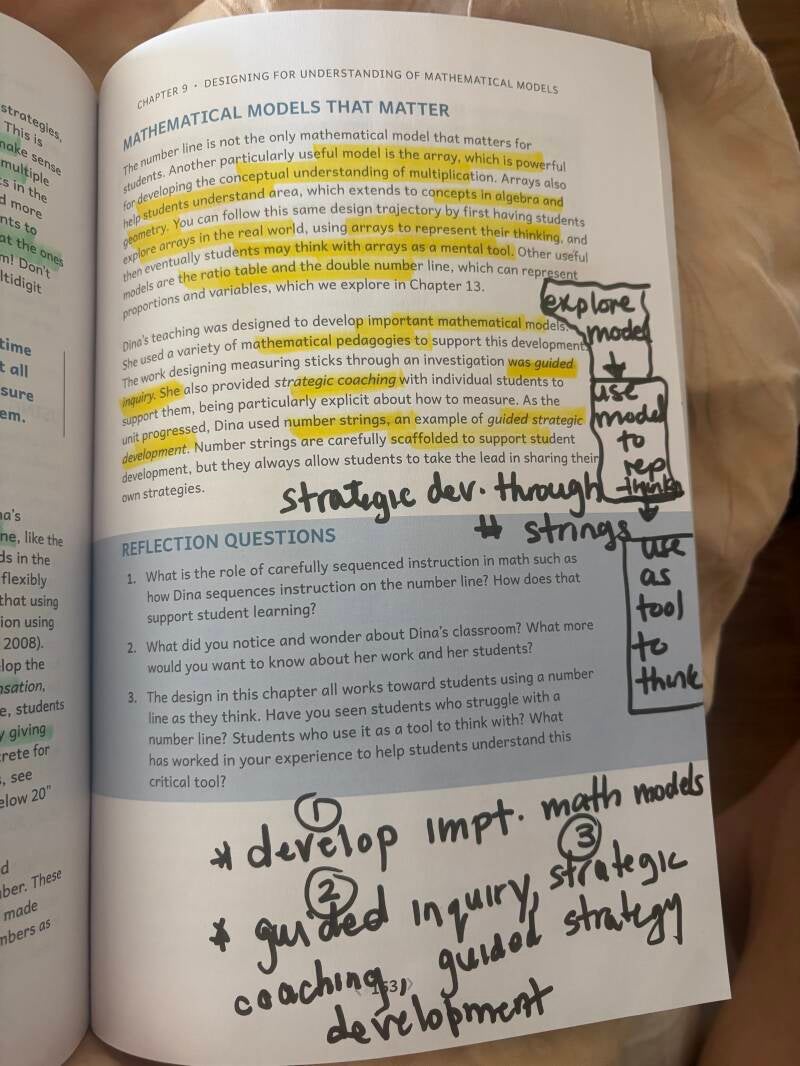 strategies,
This is
make sense
multiple
s in the
d more
nts to
at the ones
m! Don't
ltidigit
time
t all
sure
em.
na's
ne, like the
ds in the
flexibly
that using
ion using
2008).
lop the
nsation,
e, students
y giving
crete for
s, see
elow 20"
d
ber. These
made
mbers as
CHAPTER 9 • DESIGNING FOR UNDERSTANDING OF MATHEMATICAL MODELS
MATHEMATICAL MODELS THAT MATTER
The number line is not the only mathematical model that matters for
students. Another particularly useful model is the array, which is powerful
for developing the conceptual understanding of multiplication. Arrays also
help students understand area, which extends to concepts in algebra and
geometry. You can follow this same design trajectory by first having students
explore arrays in the real world, using arrays to represent their thinking, and
then eventually students may think with arrays as a mental tool. Other useful
models are the ratio table and the double number line, which can represent
proportions and variables, which we explore in Chapter 13.
Dina's teaching was designed to develop important mathematical models.
She used a variety of mathematical pedagogies to support this development.
The work designing measuring sticks through an investigation was guided
inquiry. She also provided strategic coaching with individual students to
support them, being particularly explicit about how to measure. As the
unit progressed, Dina used number strings, an example of guided strategic
development. Number strings are carefully scaffolded to support student
development, but they always allow students to take the lead in sharing their
own strategies.
explore
model
use
model
to
rep
think
use
as
tool
to
think
strategic dev. through
# strings
REFLECTION QUESTIONS
1. What is the role of carefully sequenced instruction in math such as
how Dina sequences instruction on the number line? How does that
support student learning?
2. What did you notice and wonder about Dina's classroom? What more
would you want to know about her work and her students?
3. The design in this chapter all works toward students using a number
line as they think. Have you seen students who struggle with a
number line? Students who use it as a tool to think with? What
has worked in your experience to help students understand this
critical tool?
①
* develop impt. math models
② ③
* guided inquiry, strategic
coaching, guided strategy
development
153